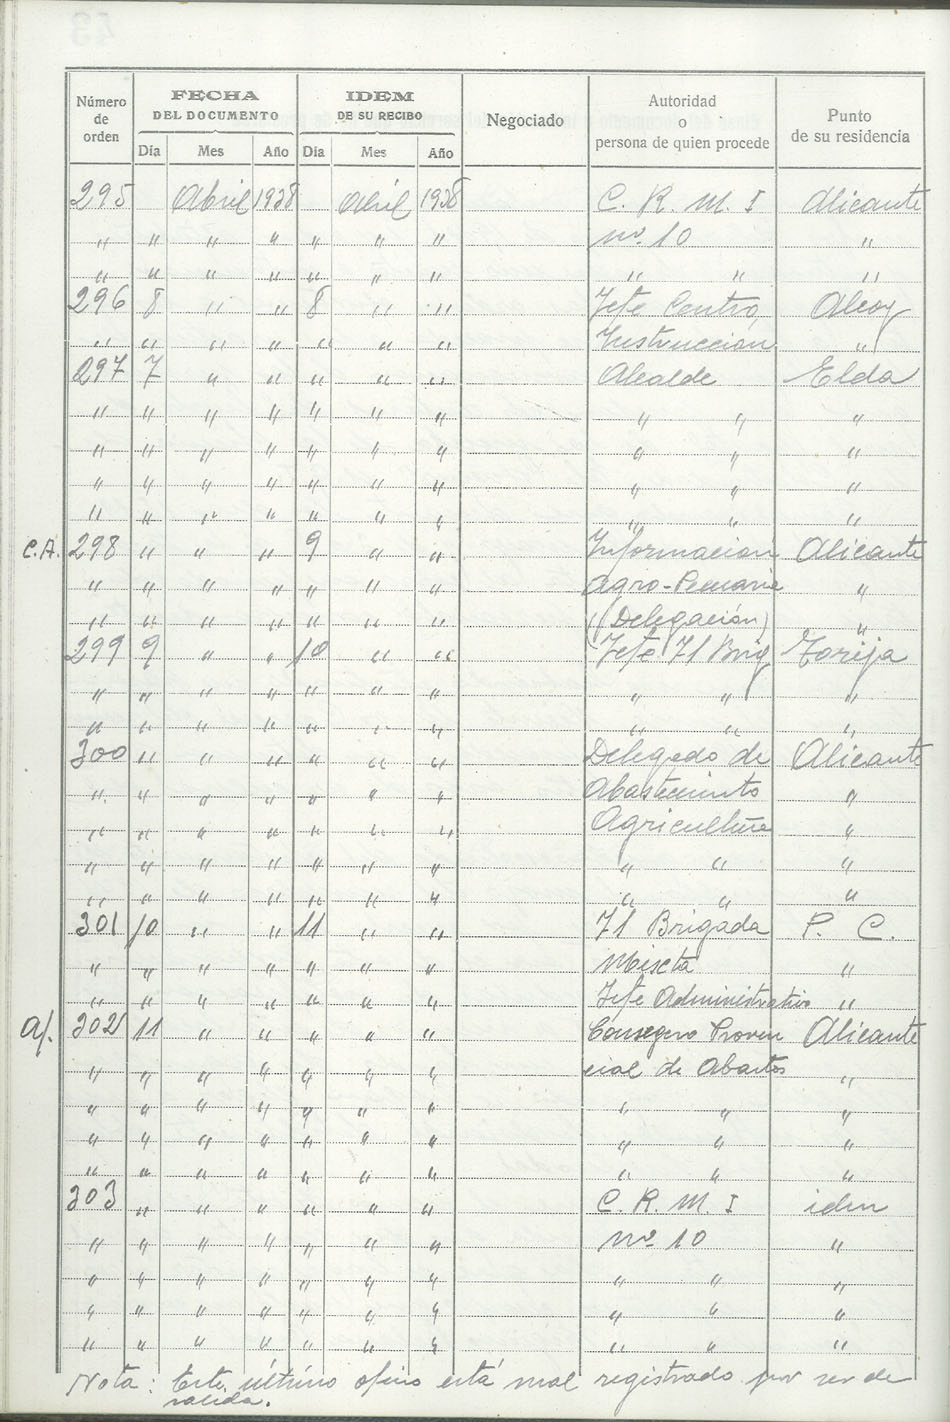 Número de orden | FECHA DEL DOCUMENTO | IDEM DE SU RECIBO | Negociado | Autoridad o persona de quien procede | Punto de su residencia
Día | Mes | Año | Día | Mes | Año
295 | Abril 1938 | Abril 1938 | C. R. M. I | Alicante
" " " " " " " nº 10 "
" " " " " " " " " "
296 8 " " 8 " " Jefe Centro, Alcoy
" " " " " " " Instruccion "
297 7 " " " " " Alcalde Elda
" " " " " " " " " "
" " " " " " " " " "
" " " " " " " " " "
" " " " " " " " " "
C.A. 298 " " " 9 " " Informacion Alicante
" " " " " " " Agro-Pecuaria "
" " " " " " " (Delegación) "
299 9 " " 10 " " Jefe 71 Brig Torija
" " " " " " " " " "
" " " " " " " " " "
300 " " " " " " Delegado de Alicante
" " " " " " " Abastecimto "
" " " " " " " Agricultura "
" " " " " " " " " "
" " " " " " " " " "
301 10 " " 11 " " 71 Brigada P. C.
" " " " " " " Mixta "
" " " " " " " Jefe Administrativo "
A/. 302 11 " " " " " Consegero Provin Alicante
" " " " " " " cial de Abastos "
" " " " " " " " " "
" " " " " " " " " "
" " " " " " " " " "
303 " " " " " " C. R. M. I idem
" " " " " " " nº 10 "
" " " " " " " " " "
" " " " " " " " " "
" " " " " " " " " "
Nota: Este último oficio está mal registrado por ser de
salida.